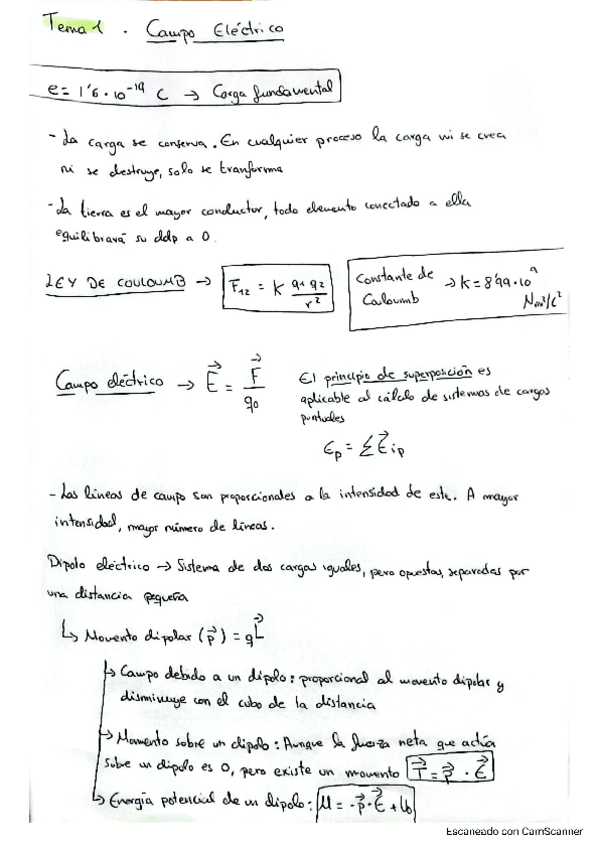 Tema 1 . Campo Eléctrico
e = 1'6 · 10⁻¹⁹ C → Carga fundamental
- La carga se conserva. En cualquier proceso la carga ni se crea
ni se destruye, solo se tranforma
- La tierra es el mayor conductor, todo elemento conectado a ella
equilibrará su ddp a 0.
LEY DE COULOUMB → F₁₂ = K q₁ q₂ / r²
Constante de → k = 8'99 · 10⁹
Couloumb Nm²/C²
Campo eléctrico → E⃗ = F⃗ / q₀
El principio de superposición es
aplicable al cálculo de sistemas de cargas
puntuales
Ep = ΣE⃗ip
- Las líneas de campo son proporcionales a la intensidad de este. A mayor
intensidad, mayor número de líneas.
Dipolo eléctrico → Sistema de dos cargas iguales, pero opuestas, separadas por
una distancia pequeña
↳ Momento dipolar (p⃗) = qL⃗
↳ Campo debido a un dipolo: proporcional al momento dipolar y
disminuye con el cubo de la distancia
↳ Momento sobre un dipolo: Aunque la fuerza neta que actúa
sobre un dipolo es 0, pero existe un momento T⃗ = p⃗ · E⃗
↳ Energía potencial de un dipolo: U = -p⃗ · E⃗ + U₀
Escaneado con CamScanner